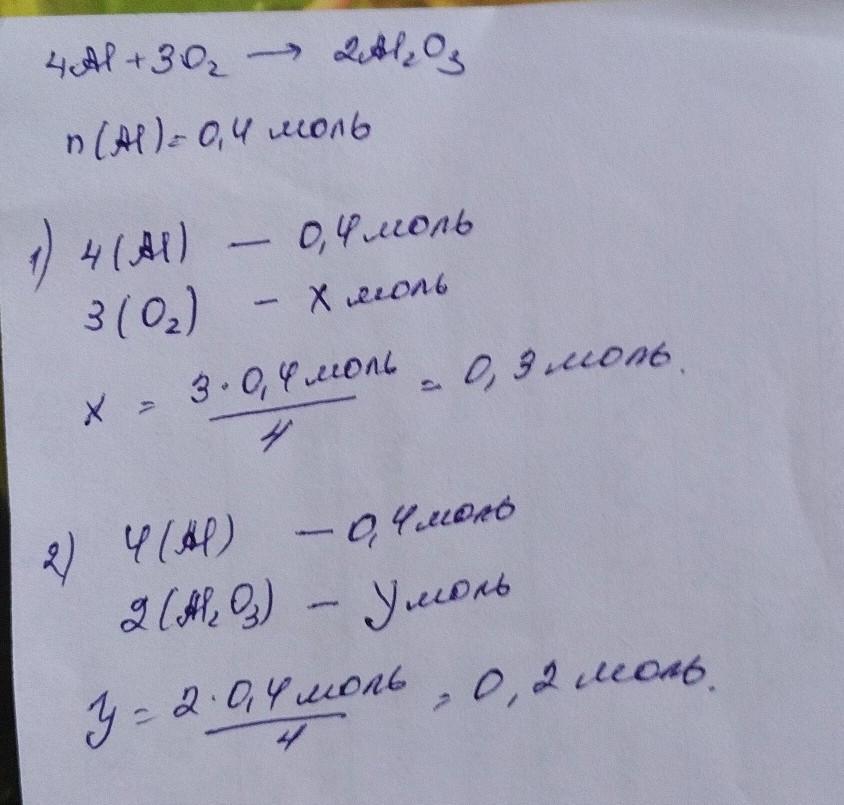 4Al + 3O₂ → 2Al₂O₃
n(Al) = 0,4 моль
1) 4(Al) — 0,4 моль
3(O₂) — x моль
x = 3·0,4 моль / 4 = 0,3 моль.
2) 4(Al) — 0,4 моль
2(Al₂O₃) — y моль
y = 2·0,4 моль / 4 = 0,2 моль.